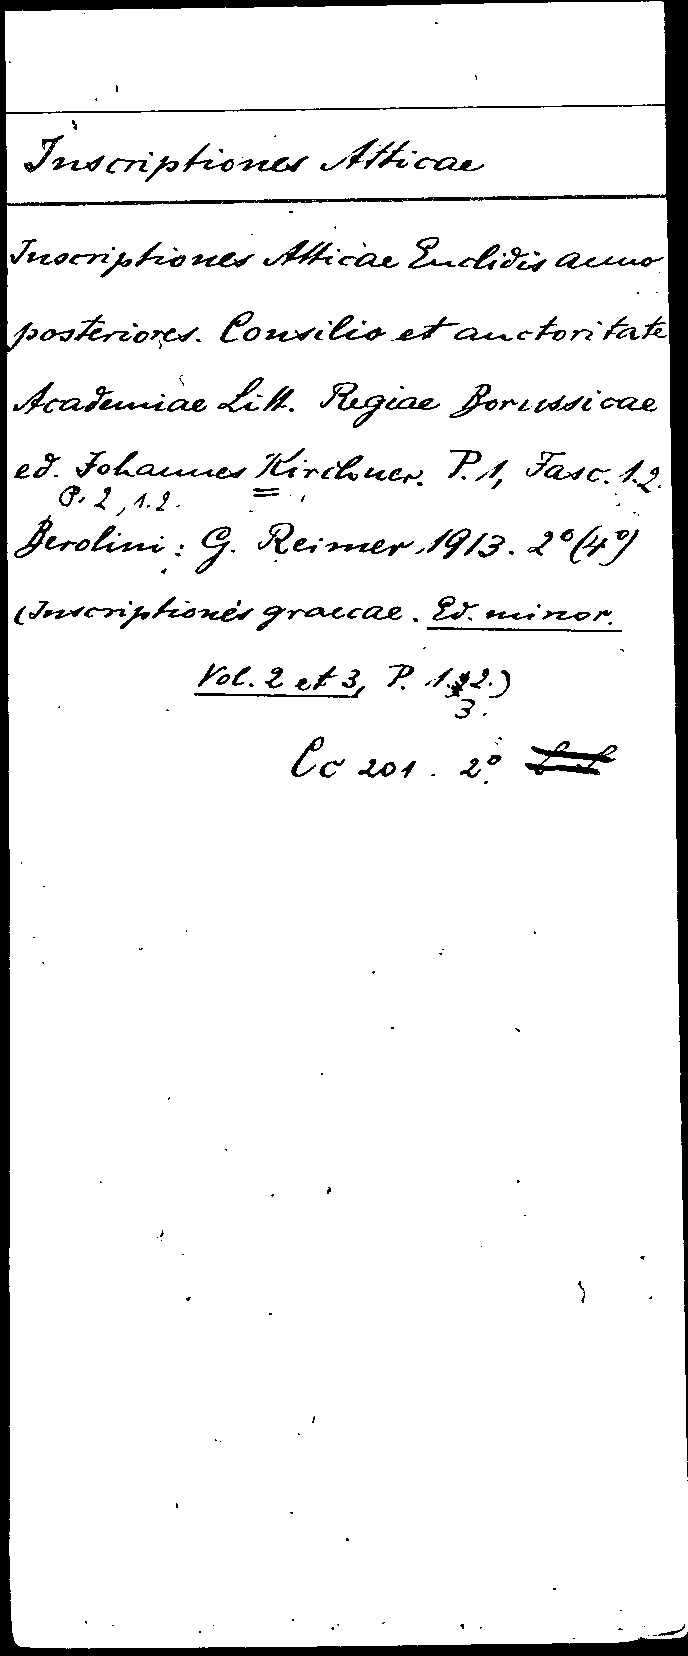 Inscriptiones Atticae
Inscriptiones Atticae Euclidis anno
posteriores. Consilio et auctoritate
Academiae Litt. Regiae Borussicae
ed. Johannes Kirchner. P. 1, Fasc. 1.2.
P. 2, 1.2.
Berolini: G. Reimer 1913. 2° (4°)
(Inscriptiones graecae. Ed. minor.
Vol. 2 et 3, P. 1. 2.)
3.
Cc 201. 2°